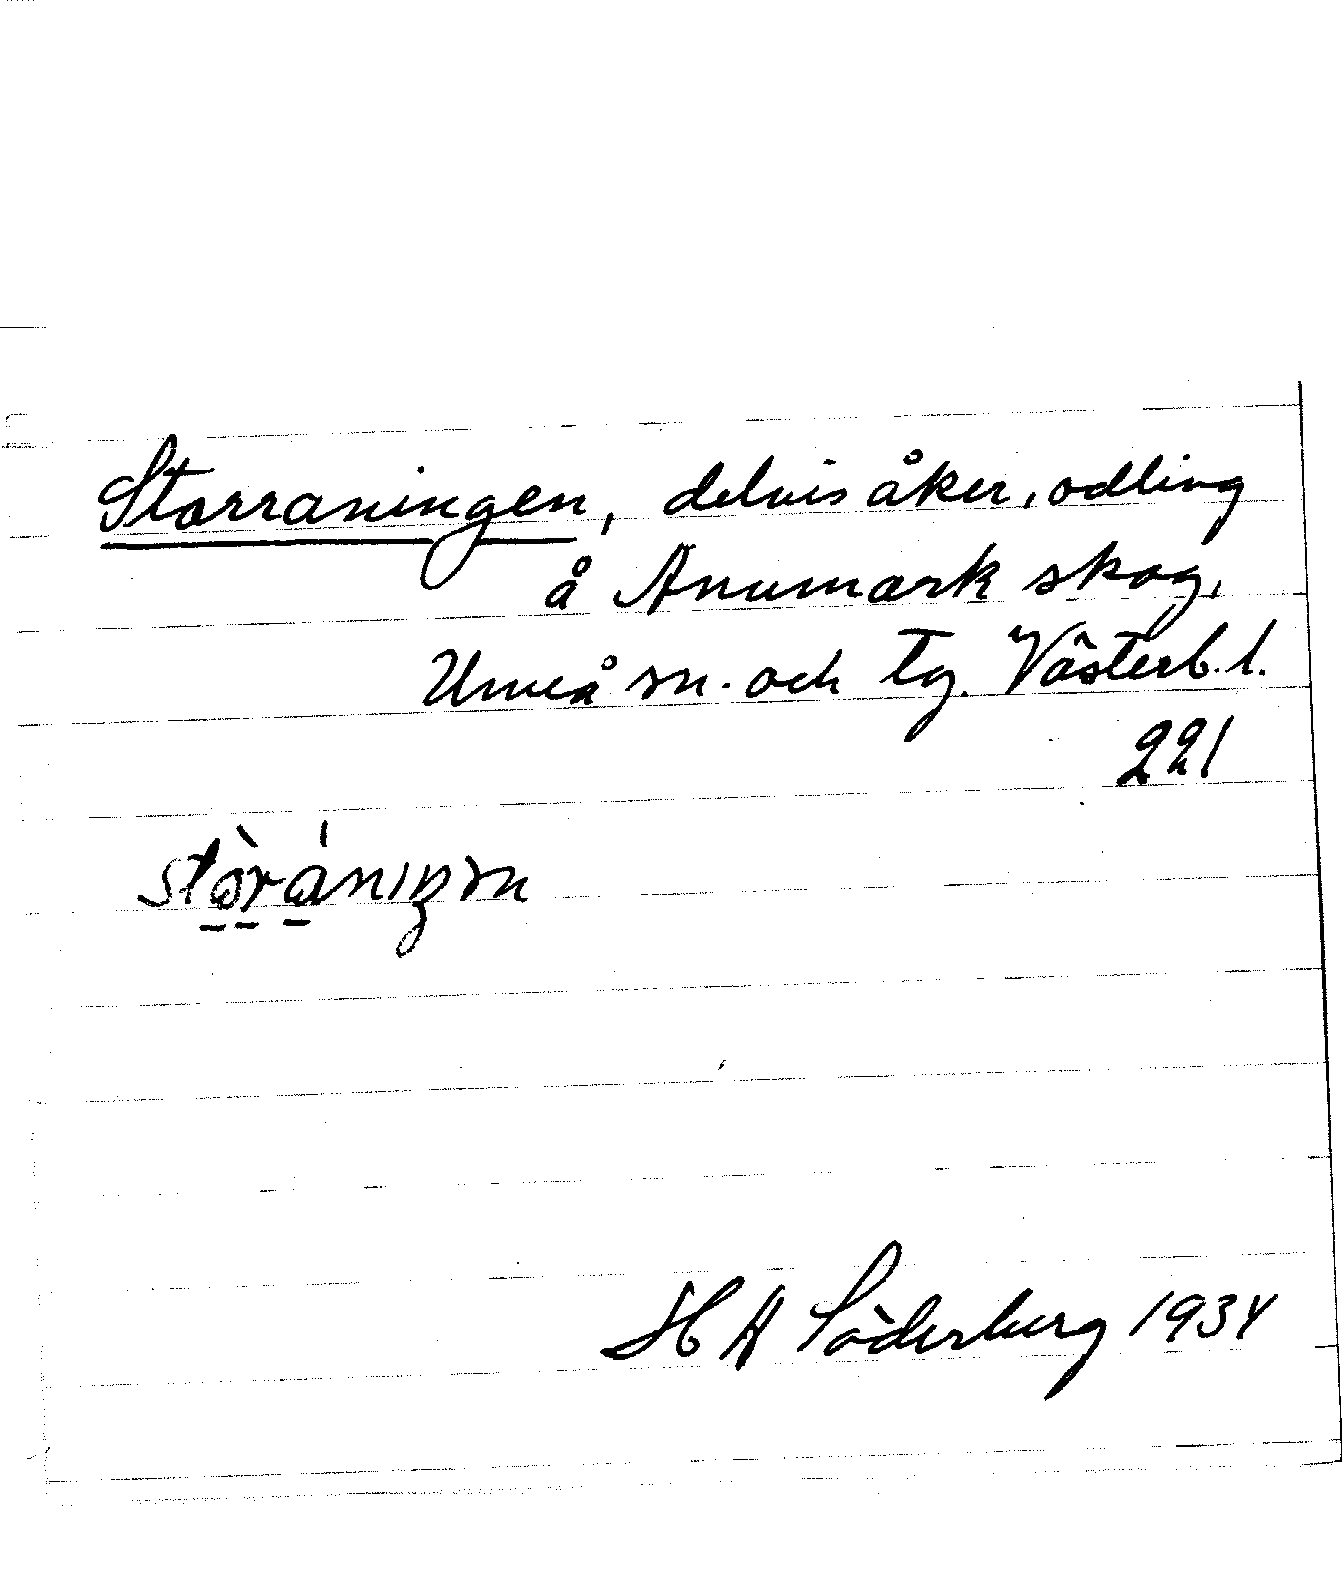 Storraningen, delvis åker, odling
å Anumark skog,
Umeå sn. och tg. Västerb. l.
221
stòrániŋm
H A Söderberg 1934